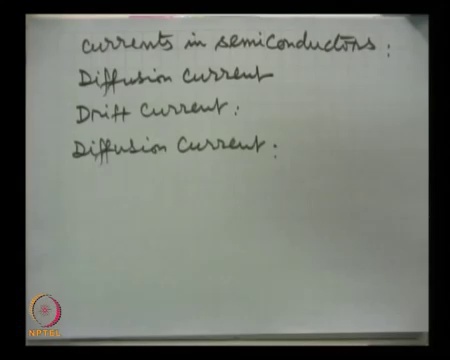 currents in semiconductors :
Diffusion current
Drift current :
Diffusion current :
NPTEL